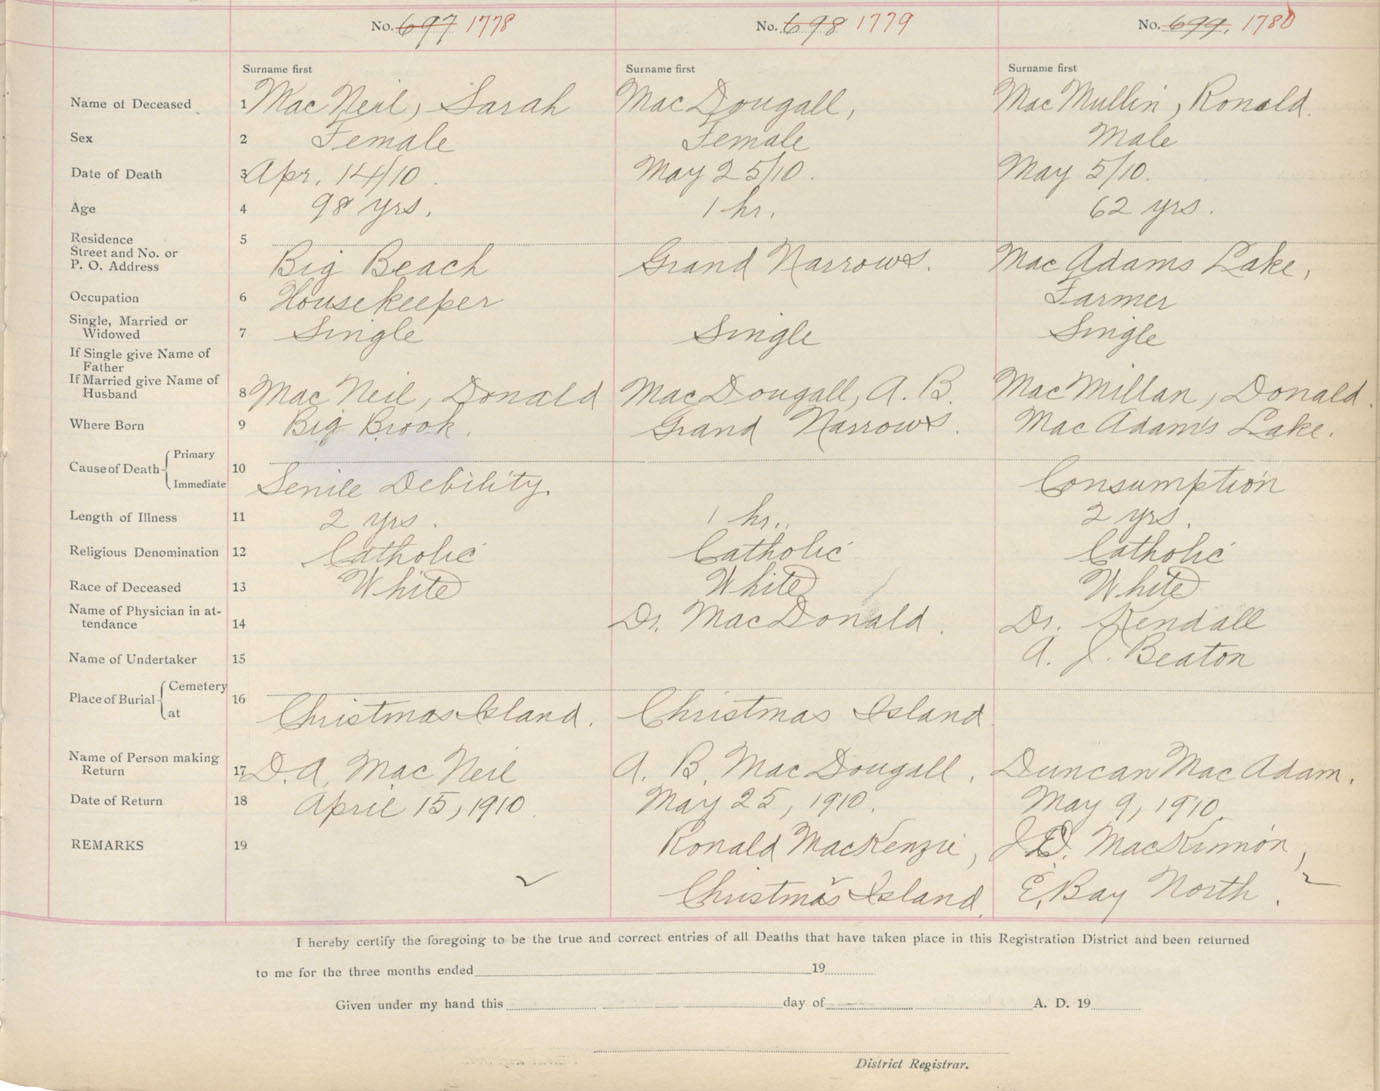 No. 697 1778 No. 698 1779 No. 699. 1780
Surname first Surname first Surname first
Name of Deceased 1 MacNeil, Sarah MacDougall, MacMullin, Ronald.
Sex 2 Female Female Male
Date of Death 3 Apr. 14/10. May 25/10. May 5/10.
Age 4 98 yrs. 1 hr. 62 yrs.
Residence 5
Street and No. or
P. O. Address Big Beach Grand Narrows. MacAdams Lake,
Occupation 6 Housekeeper Farmer
Single, Married or
Widowed 7 Single Single Single
If Single give Name of
Father
If Married give Name of
Husband 8 MacNeil, Donald MacDougall, A. B. MacMillan, Donald.
Where Born 9 Big Brook. Grand Narrows. MacAdam's Lake.
Cause of Death Primary 10
Immediate Senile Debility. Consumption
Length of Illness 11 2 yrs. 1 hr. 2 yrs.
Religious Denomination 12 Catholic Catholic Catholic
Race of Deceased 13 White White White
Name of Physician in at-
tendance 14 Dr. MacDonald. Dr. Kendall
Name of Undertaker 15 A. J. Beaton
Place of Burial Cemetery 16
at Christmas Island. Christmas Island
Name of Person making
Return 17 D. A. MacNeil A. B. MacDougall. Duncan MacAdam.
Date of Return 18 April 15, 1910. May 25, 1910. May 9, 1910.
REMARKS 19 Ronald MacKenzie, J. D. MacKinnon,
Christmas Island. E. Bay North.
I hereby certify the foregoing to be the true and correct entries of all Deaths that have taken place in this Registration District and been returned
to me for the three months ended 19
Given under my hand this day of A. D. 19
District Registrar.